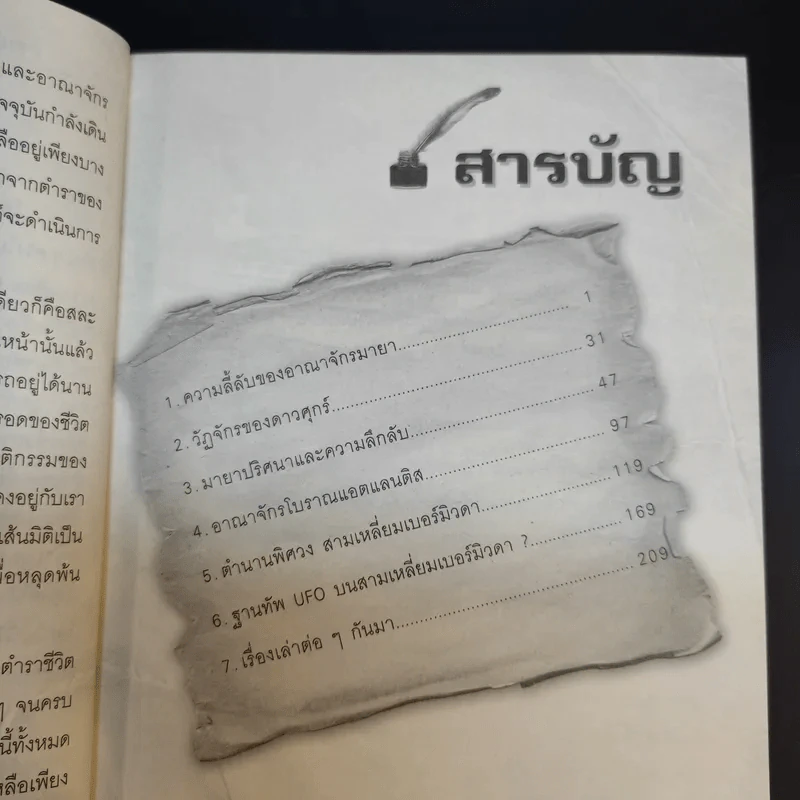 และอาณาจักร
จจุบันกำลังเดิน
ลืออยู่เพียงบาง
จากตำราของ
จะดำเนินการ
ดียวก็คือสละ
หน้านั้นแล้ว
รถอยู่ได้นาน
รอดของชีวิต
ติกรรมของ
งอยู่กับเรา
เส้นมิติเป็น
พื่อหลุดพ้น
ตำราชีวิต
ๆ จนครบ
นี้ทั้งหมด
หลือเพียง
สารบัญ
1. ความลี้ลับของอาณาจักรมายา.......................... 1
2. วัฏจักรของดาวศุกร์.......................................31
3. มายาปริศนาและความลึกลับ............................47
4. อาณาจักรโบราณแอตแลนติส..........................97
5. ตำนานพิศวง สามเหลี่ยมเบอร์มิวดา....................119
6. ฐานทัพ UFO บนสามเหลี่ยมเบอร์มิวดา ?...............169
7. เรื่องเล่าต่อ ๆ กันมา.......................................209